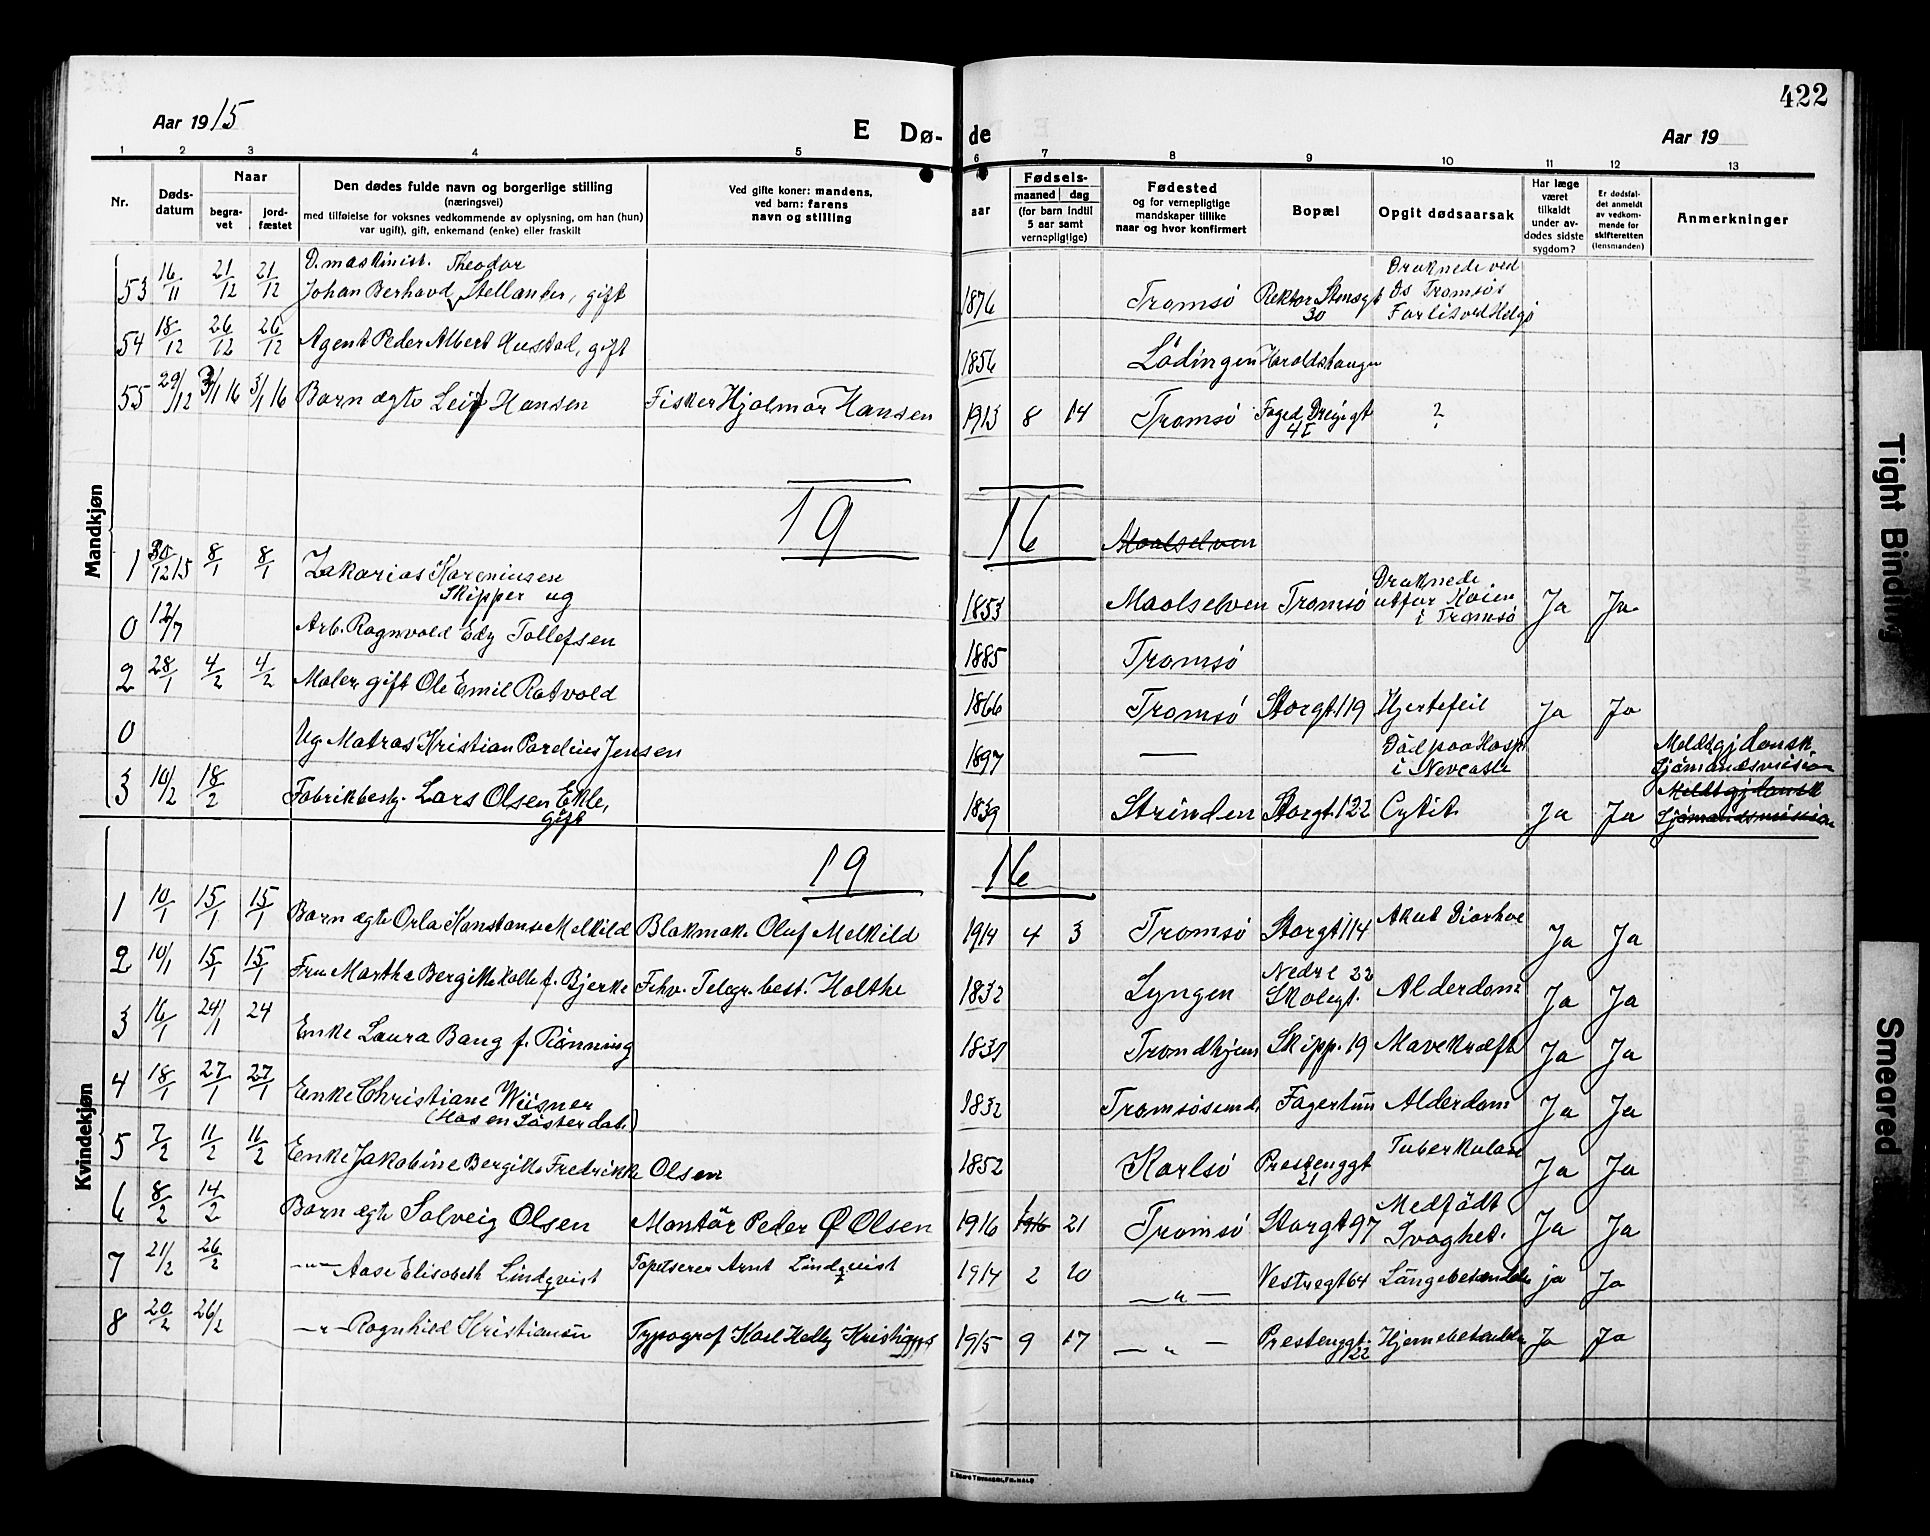 422
Aar 1915
E Dø-
de
Aar 19
1 2 3 4 5 6 7 8 9 10 11 12 13
Nr.
Døds-
datum
Naar
begra-
vet
jord-
fæstet
Den dødes fulde navn og borgerlige stilling
(næringsvei)
med tilføielse for voksnes vedkommende av oplysning, om han (hun)
var ugift), gift, enkemand (enke) eller fraskilt
Ved gifte koner: mandens,
ved barn: farens
navn og stilling
aar
Fødsels-
maaned dag
(for barn indtil
5 aar samt
vernepligtige)
Fødested
og for vernepligtige
mandskaper tillike
naar og hvor konfirmert
Bopæl
Opgit dødsaarsak
Har læge
været
tilkaldt
under av-
dødes sidste
sygdom?
Er dødsfal-
det anmeldt
av vedkom-
mende for
skifteretten
(lensmanden)
Anmerkninger
Mandkjøn
53 16/11 21/12 21/12 D. maskinist. Theodor
Johan Berhard Stellander, gift
1876 Tromsø Rektor Stensgt 30 Druknede ved
Ds Tromsøs
Forlis ved Helgø
54 18/12 26/12 26/12 Agent Peder Albert Hustad, gift
1856 Lödingen Haraldstangen
55 29/12 3/1 16 3/1 16 Barn ægte Leif Hansen Fisker Hjalmar Hansen
1913 8 14 Tromsø Foged Dreyegt 41 ?
19 16
Maalselven
1 30/12 15 8/1 8/1 Zakarias Kareniusen
Skipper ug
1853 Maalselven Tromsø Druknede
utfor Kaien
i Tromsø Ja Ja
0 12/7 Arb. Ragnvald Edy Tollefsen
1885 Tromsø
2 28/1 4/2 4/2 Maler, gift Ole Emil Rotvold
1866 Tromsø Storgt. 119 Hjertefeil Ja Ja
0 Ug Matros Kristian Pardius Jensen
1897 — Död paa Hosp.
i Nevcastle Meldt gj dansk
Sjömandsmision
3 10/2 18/2 Fabrikbesty. Lars Olsen Ekle,
gift
1839 Strinden Storgt. 122 Cytit. Ja Ja Meldt gj dansk
Sjömandsmision
19 16
Kvindekjøn
1 10/1 15/1 15/1 Barn ægte Orla Konstanse Melkild Blakmak. Oluf Melkild
1914 4 3 Tromsø Storgt 114 Akut Diarhoe Ja Ja
2 10/1 15/1 15/1 Fru Marthe Bergitte Holte f. Bjerke Fhv. Telegr. best. Holthe
1832 Lyngen Nedre 22
Skolegt. Alderdom Ja Ja
3 16/1 24/1 24 Enke Laura Bang f. Rönning
1831 Trondhjem Skipp. 19 Mavekræft Ja Ja
4 18/1 27/1 27/1 Enke Christiane Wisner
1832 Tromsösund. Fagertun Alderdom Ja Ja
5 7/2 11/2 11/2 Enke Jakobine Bergitte Fredrikke Olsen
1852 Karlsö Prestenggt
21 Tuberkulose Ja Ja
6 8/2 14/2 Barn ægte Solveig Olsen Montör Peder Ø Olsen
1916 1916 21 Tromsø Storgt 97 Medfödt
Svaghet. Ja Ja
7 21/2 26/2 —"— Aase Elisabeth Lindqvist Tapetserer Arnt Lindqvist
1914 2 20 —"— Vestregt 64 Lungebetændelse ja Ja
8 20/2 26/2 —"— Ragnhild Kristiansen Typograf Karl Helly Kristians
1915 9 17 —"— Prestenggt.
22 Hjernebetændelse Ja Ja
Tight Binding
Smeared